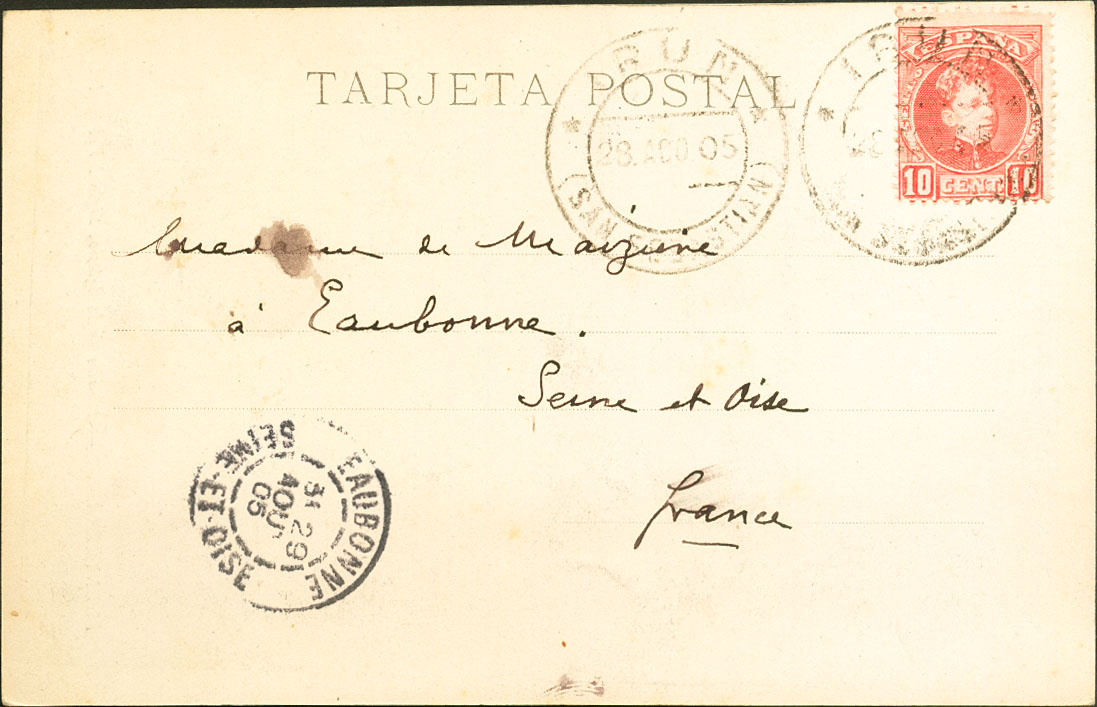 TARJETA POSTAL
* IRUN *
28.AGO 05
(SAN SEBASTIAN)
* IRUN
28
ESPAÑA
10 CENT 10
Madame de Maizière
à Eaubonne.
Seine et Oise
France
EAUBONNE
31 29
AOUT
05
SEINE-ET-OISE